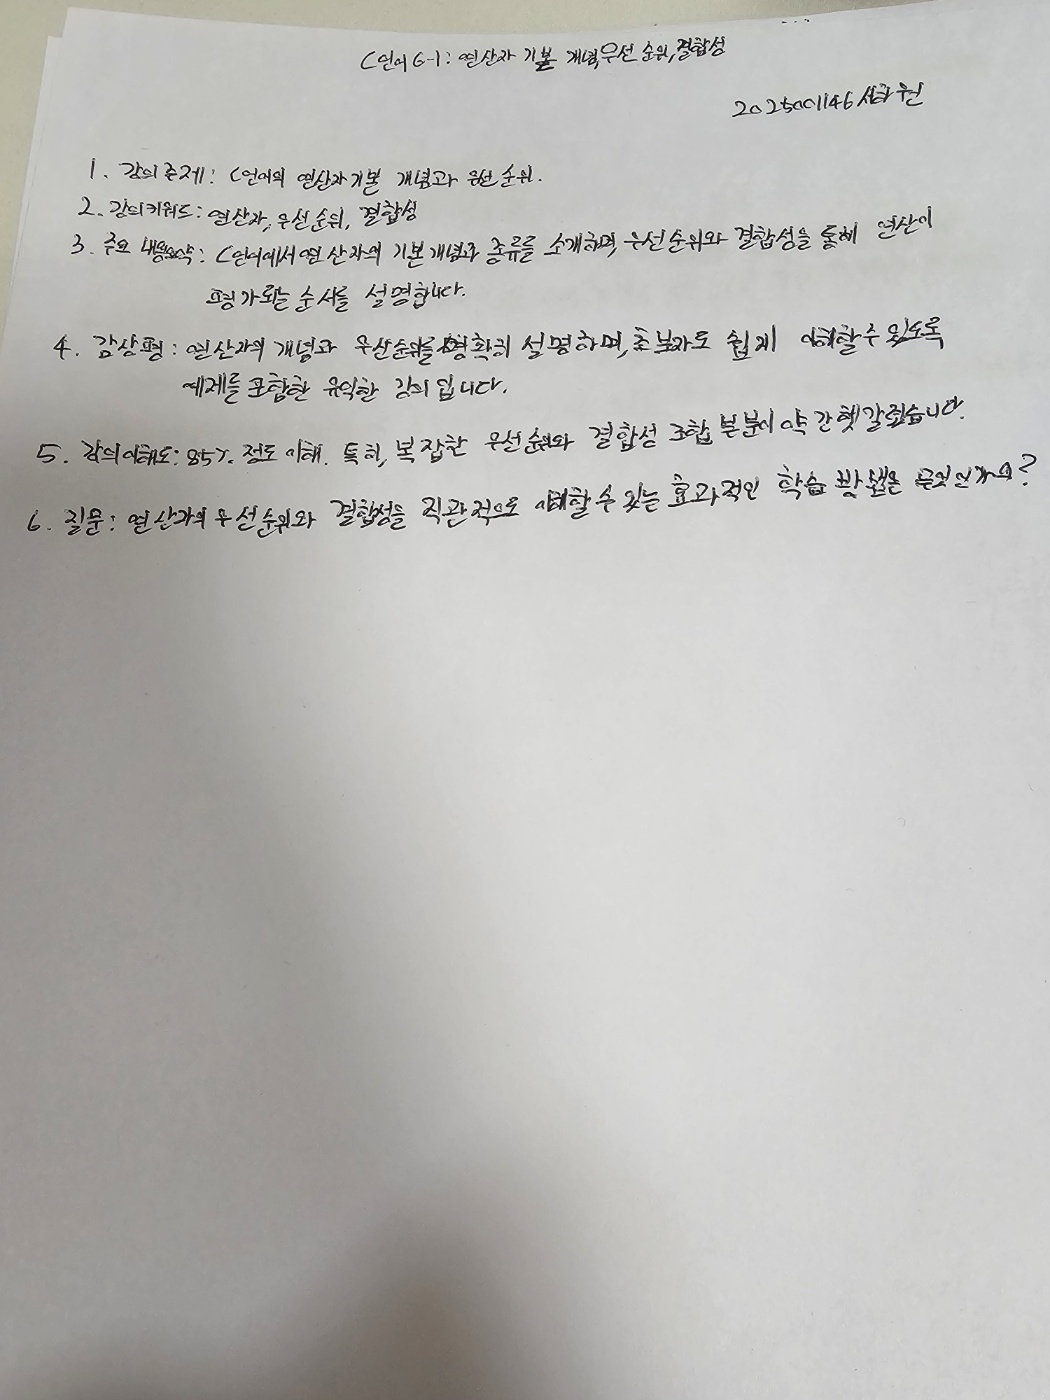 C언어 6-1: 연산자 기본 개념, 우선 순위, 결합성
2025001146 서하원
1. 강의 주제: C언어의 연산자 기본 개념과 우선 순위.
2. 강의 키워드: 연산자, 우선 순위, 결합성
3. 주요 내용요약: C언어에서 연산자의 기본개념과 종류를 소개하며, 우선순위와 결합성을 통해 연산이
평가되는 순서를 설명합니다.
4. 감상평: 연산자의 개념과 우선순위를 명확히 설명하며, 초보자도 쉽게 이해할 수 있도록
예제를 포함한 유익한 강의 입니다.
5. 강의이해도: 85% 정도 이해. 특히, 복잡한 우선순위와 결합성 조합 부분이 약간 헷갈렸습니다.
6. 질문: 연산자의 우선순위와 결합성을 직관적으로 이해할 수 있는 효과적인 학습 방법은 무엇인가요?